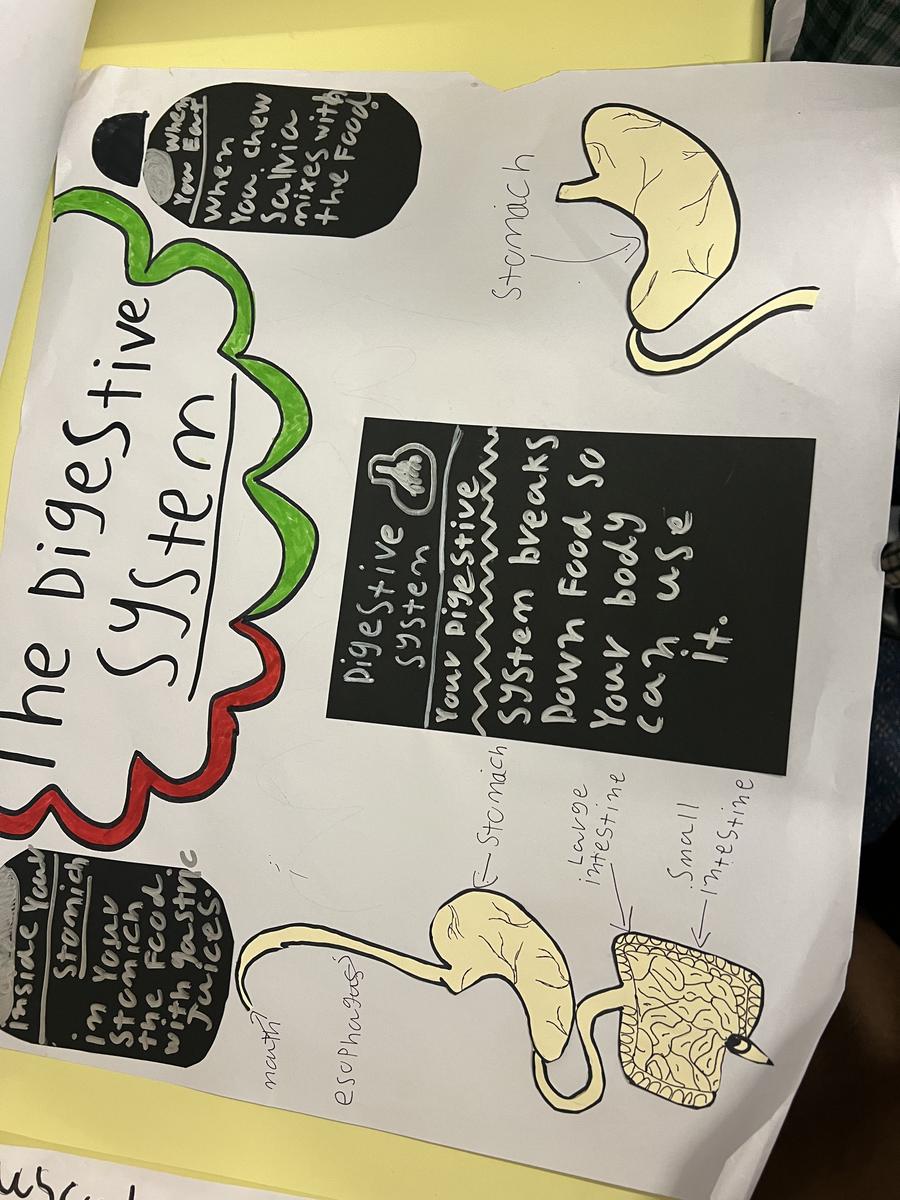 The Digestive
System
Inside Your
Stomich
in Your
Stomich
the Food
with gastric
Juices.
When
You Eat
When
You chew
Salvia
mixes with
the Food
Digestive
system
Your Digestive
system breaks
Down Food so
Your body
can use
it.
mouth
esophagus
Stomich
Large
intestine
Small
Intestine
Stomich